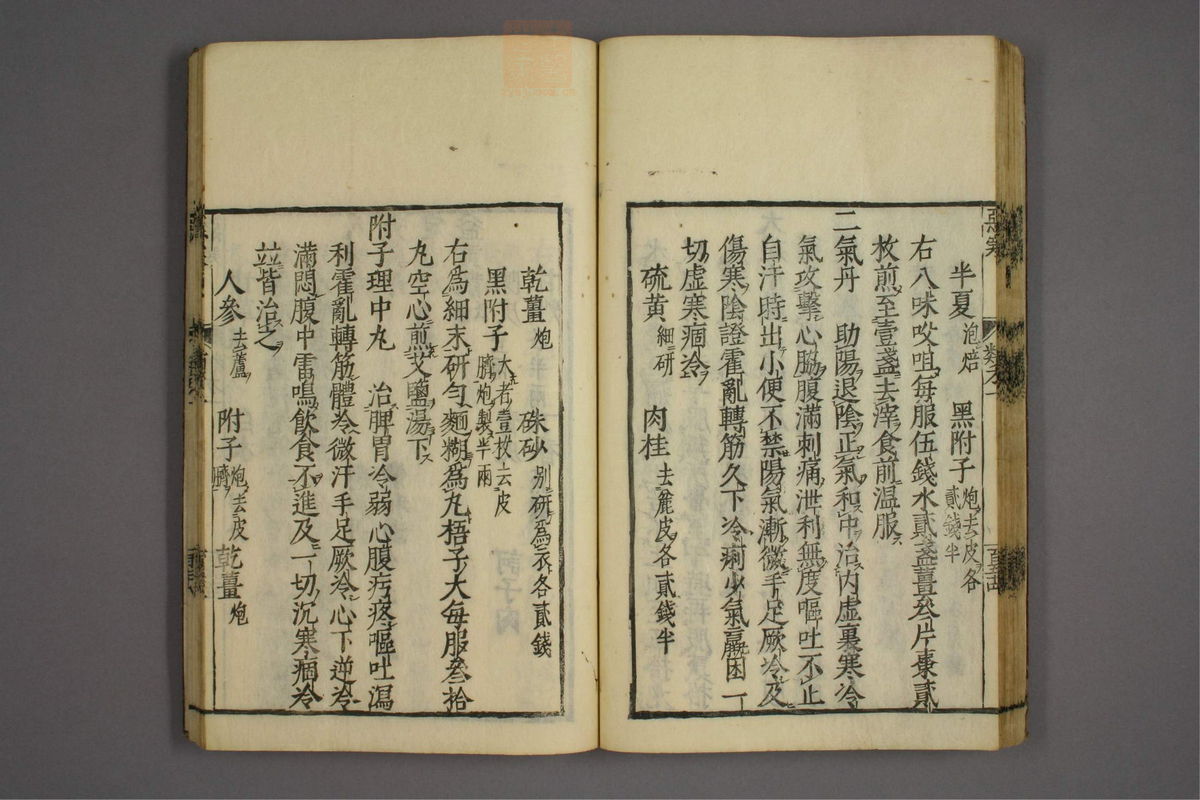 半夏泡焙　黑附子炮去皮各貳錢半
右八味㕮咀每服伍錢水貳盞薑叁片棗貳
枚煎至壹盞去滓食前温服
二氣丹　助陽退陰正氣和中治內虛裏寒冷
氣攻擊心脇腹滿刺痛泄利無度嘔吐不止
自汗時出小便不禁陽氣漸微手足厥冷及
傷寒陰證霍亂轉筋久下冷痢少氣羸困一
切虛寒痼冷
硫黄細研　肉桂去麄皮各貳錢半
乾薑炮　硃砂別研爲衣各貳錢
黑附子大者壹枚去皮臍炮製半兩
右爲細末研勻麵糊爲丸梧子大每服叁拾
丸空心煎艾鹽湯下
附子理中丸　治脾胃冷弱心腹㽲疼嘔吐瀉
利霍亂轉筋體冷微汗手足厥冷心下逆冷
滿悶腹中雷鳴飲食不進及一切沉寒痼冷
並皆治之
人參去蘆　附子炮去皮臍　乾薑炮